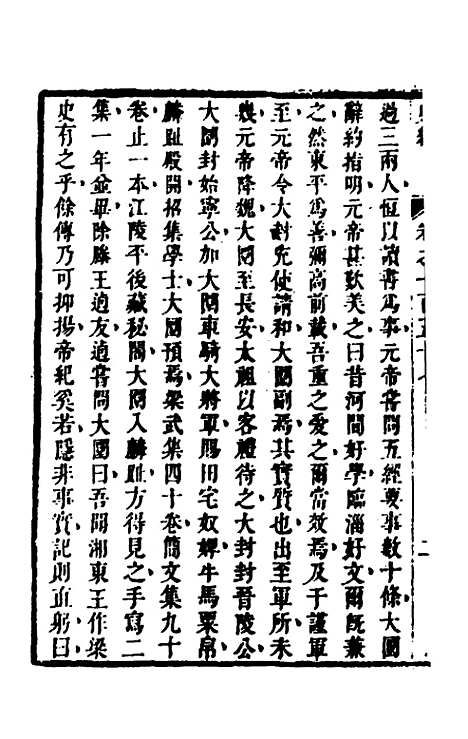 過三兩人恆以讀書爲事元帝嘗問五經要事數十條大圜
辭約指明元帝甚歎美之曰昔河間好學臨淄好文爾旣兼
之然東平爲善彌高前載吾重之愛之爾當效焉及于謹軍
至元帝令大封充使請和大圜副焉其實質也出至軍所未
幾元帝降魏大圜至長安太祖以客禮待之大封封晉陵公
大圜封始寧公加大圜車騎大將軍賜田宅奴婢牛馬粟帛
麟趾殿開招集學士大圜預焉梁武集四十卷簡文集九十
卷止一本江陵平後藏秘閣大圜入麟趾方得見之手寫二
集一年並畢除滕王逌友逌嘗問大圜曰吾聞湘東王作梁
史有之乎餘傳乃可抑揚帝紀奚若隱非事實記則直躬曰